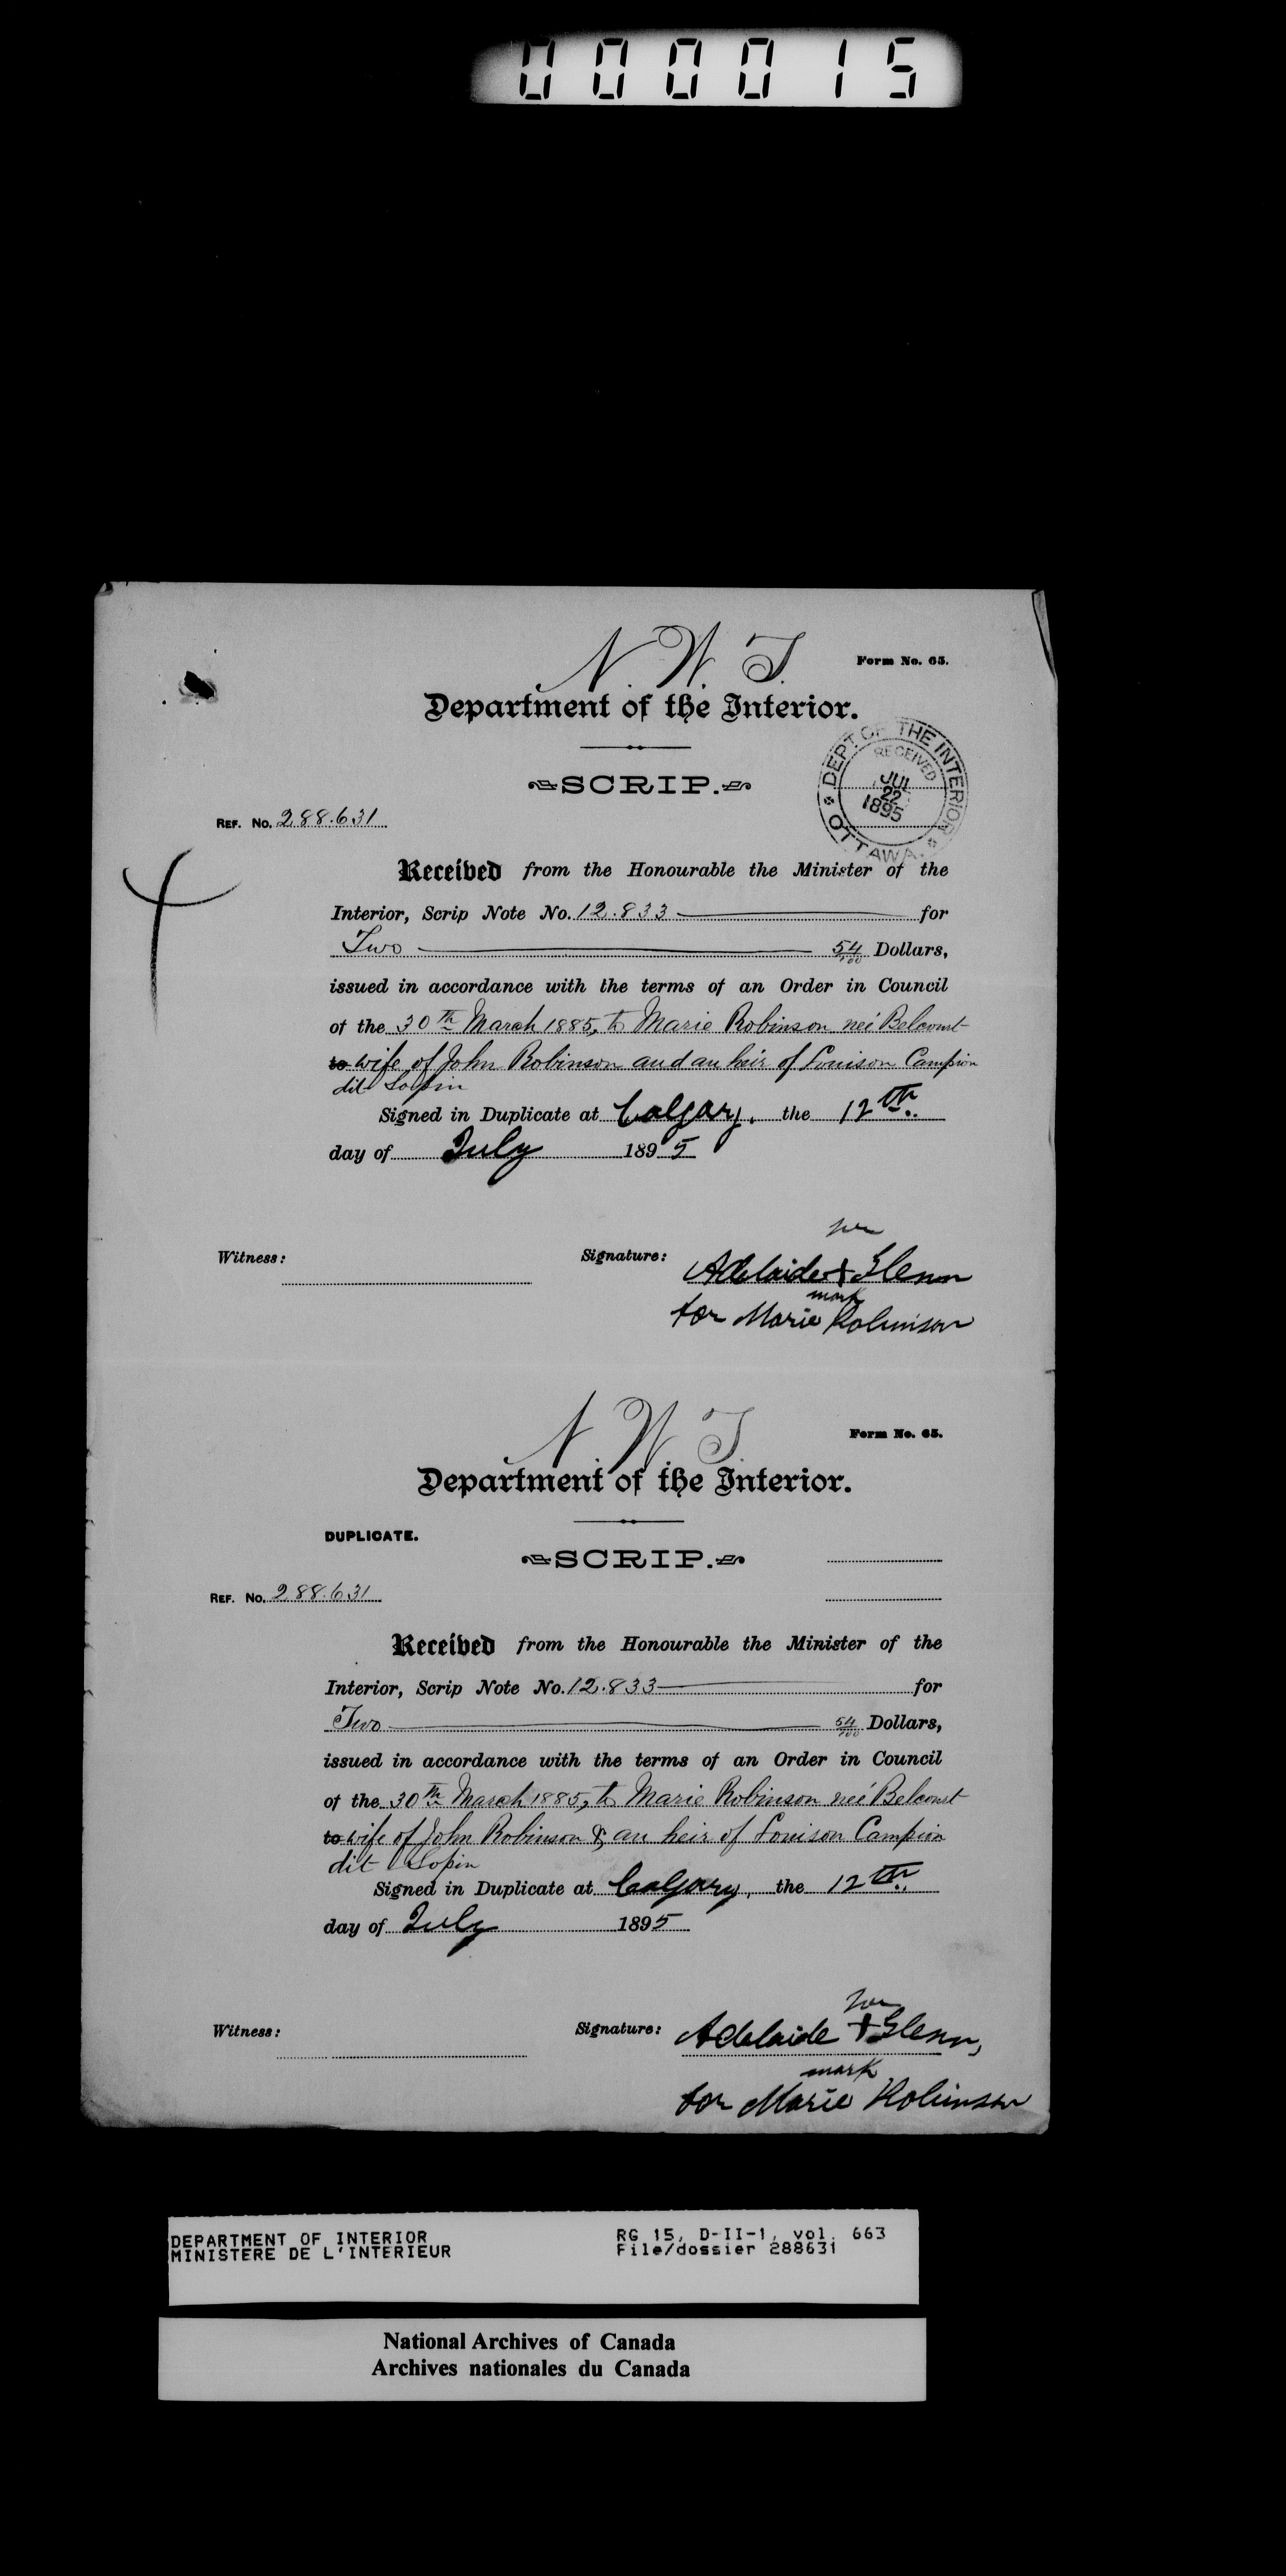 000015
N. W. T.
Form No. 65.
Department of the Interior.
SCRIP.
DEPT. OF THE INTERIOR
RECEIVED
JUL
22
1895
OTTAWA.
REF. No. 288.631
Received from the Honourable the Minister of the
Interior, Scrip Note No. 12.833 for
Two 54/100 Dollars,
issued in accordance with the terms of an Order in Council
of the 30th March 1885, to Marie Robinson neé Belcourt
to wife of John Robinson and an heir of Louison Campion
dit Lopin
Signed in Duplicate at Calgary, the 12th.
day of July 1895
her
Witness: Signature: Adelaide + Glenn
mark
for Marie Robinson
N. W. T.
Form No. 65.
Department of the Interior.
DUPLICATE.
SCRIP.
REF. No. 288.631
Received from the Honourable the Minister of the
Interior, Scrip Note No. 12.833 for
Two 54/100 Dollars,
issued in accordance with the terms of an Order in Council
of the 30th March 1885, to Marie Robinson neé Belcourt
to wife of John Robinson & an heir of Louison Campion
dit Lopin
Signed in Duplicate at Calgary, the 12th.
day of July 1895
her
Witness: Signature: Adelaide + Glenn,
mark
for Marie Robinson
DEPARTMENT OF INTERIOR RG 15, D-II-1, vol. 663
MINISTERE DE L'INTERIEUR File/dossier 288631
National Archives of Canada
Archives nationales du Canada